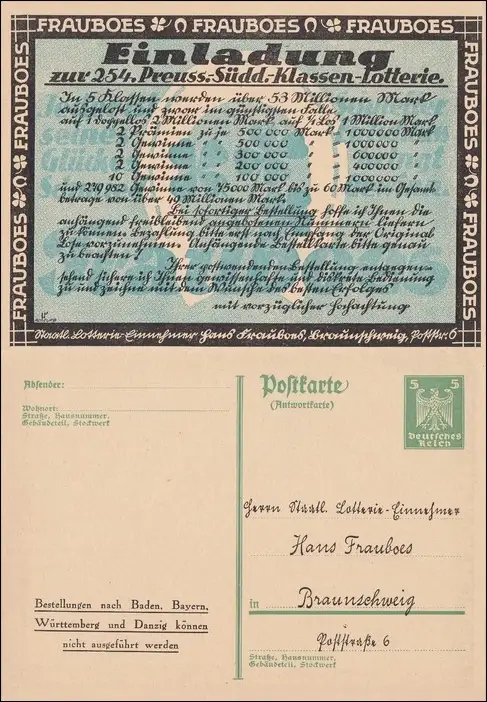 FRAUBOES FRAUBOES FRAUBOES
FRAUBOES FRAUBOES
FRAUBOES FRAUBOES
Einladung
zur 254. Preuss.-Südd.-Klassen-Lotterie.
In 5 Klassen werden über 53 Millionen Mark
ausgelost und zwar im günstigsten Falle
auf 1 Doppellos 2 Millionen Mark auf 1/1 Los 1 Million Mark
2 Prämien zu je 500 000 Mark 1000000 Mark
2 Gewinne " " 500 000 " 1000000 "
2 Gewinne " " 300 000 " 600000 "
2 Gewinne " " 200 000 " 400000 "
10 Gewinne " " 100 000 " 1000000 "
und Gewinne von 75000 Mark bis zu 60 Mark im Gesamt
betrage von über 49 Millionen Mark.
Bei sofortiger Bestellung hoffe ich Ihnen die
anhängend freibleibend angebotenen Nummern liefern
zu können. Bezahlung bitte erst nach Empfang der Original
Lose vorzunehmen. Anhängende Bestellkarte bitte genau
zu beachten!
Ihrer postwendenden Bestellung entgegen-
sehend sichere ich Ihnen gewissenhafte und diskrete Bedienung
zu und zeichne mit dem Wunsche des besten Erfolges
mit vorzüglicher Hochachtung
Staatl. Lotterie-Einnehmer Hans Frauboes, Braunschweig, Poststr. 6
Absender:
Wohnort:
Straße, Hausnummer,
Gebäudeteil, Stockwerk
Postkarte
(Antwortkarte)
5 5
Deutsches
Reich
Herrn Staatl. Lotterie-Einnehmer
Hans Frauboes
in Braunschweig
Poststraße 6
Straße, Hausnummer,
Gebäudeteil, Stockwerk
Bestellungen nach Baden, Bayern,
Württemberg und Danzig können
nicht ausgeführt werden